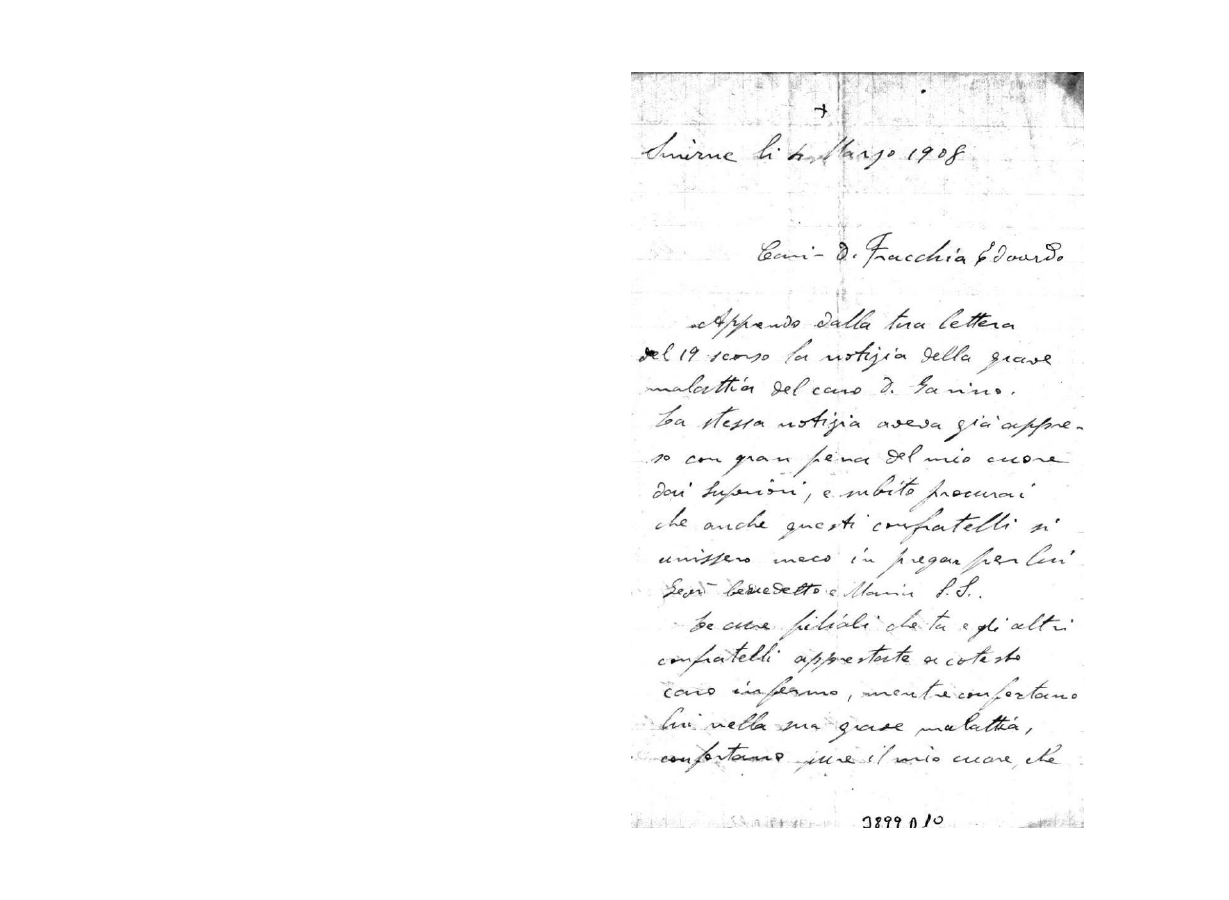 +
Smirne li 4 Marzo 1908
Car.mo D. Fracchia Edoardo
Apprendo dalla tua lettera
del 19 scorso la notizia della grave
malattia del caro D. Garino.
La stessa notizia aveva già appre-
so con gran pena del mio cuore
dai Superiori, e subito procurai
che anche questi confratelli si
unissero meco in pregar per lui
Gesù benedetto e Maria S.S.
Le cure filiali che tu e gli altri
confratelli apprestate a cotesto
caro infermo, mentre confortano
lui nella sua grave malattia,
confortano pure il mio cuore, che
3899 D 10